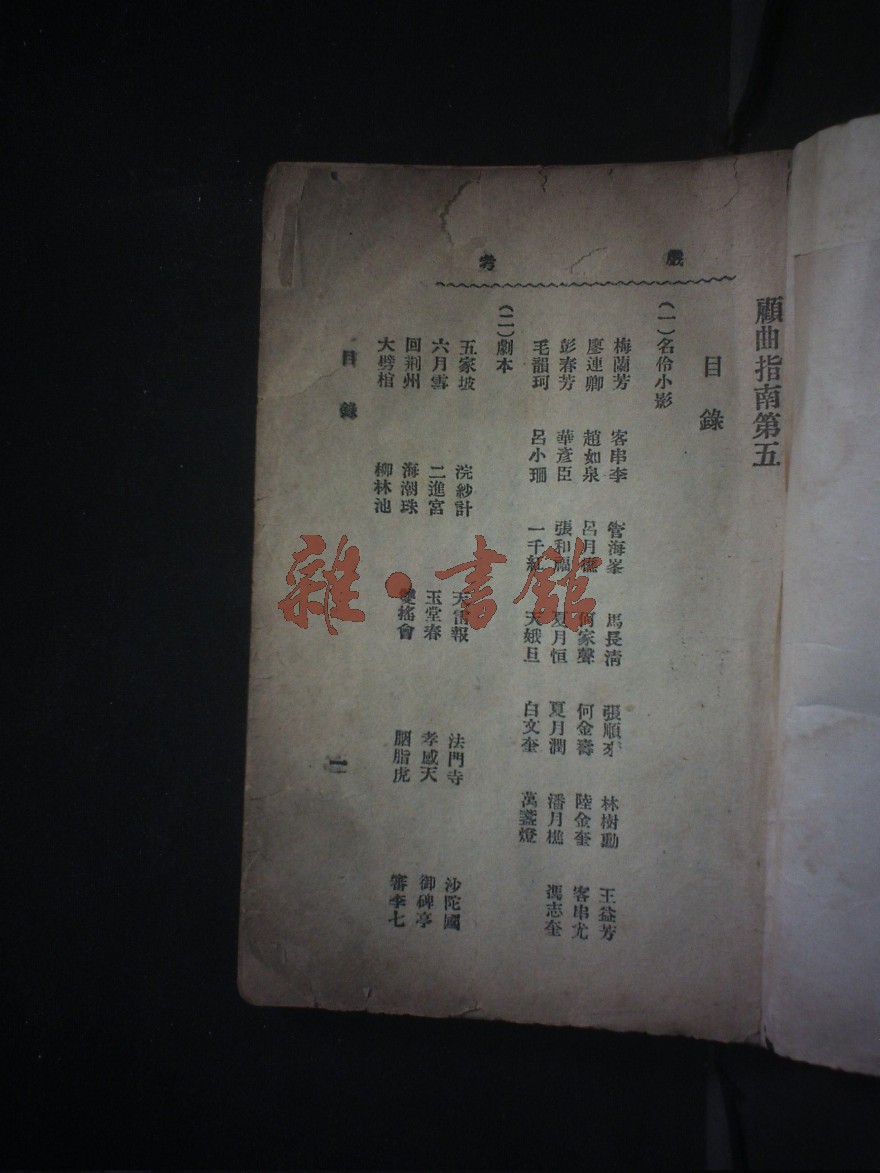 戲考
顧曲指南第五
目錄
(一)名伶小影
梅蘭芳 客串李 管海峯 馬長清 張順來 林樹勳 王益芳
廖連卿 趙如泉 呂月樵 何家聲 何金壽 陸金奎 客串尤
彭春芳 華彥臣 張和福 夏月恒 夏月潤 潘月樵 馮志奎
毛韻珂 呂小珊 一千紅 天娥旦 白文奎 萬盞燈
(二)劇本
五家坡 浣紗計 天雷報 法門寺 沙陀國
六月雪 二進宮 玉堂春 孝感天 御碑亭
回荆州 海潮珠 雙搖會 胭脂虎 審李七
大劈棺 柳林池
目錄
一
雜·書館